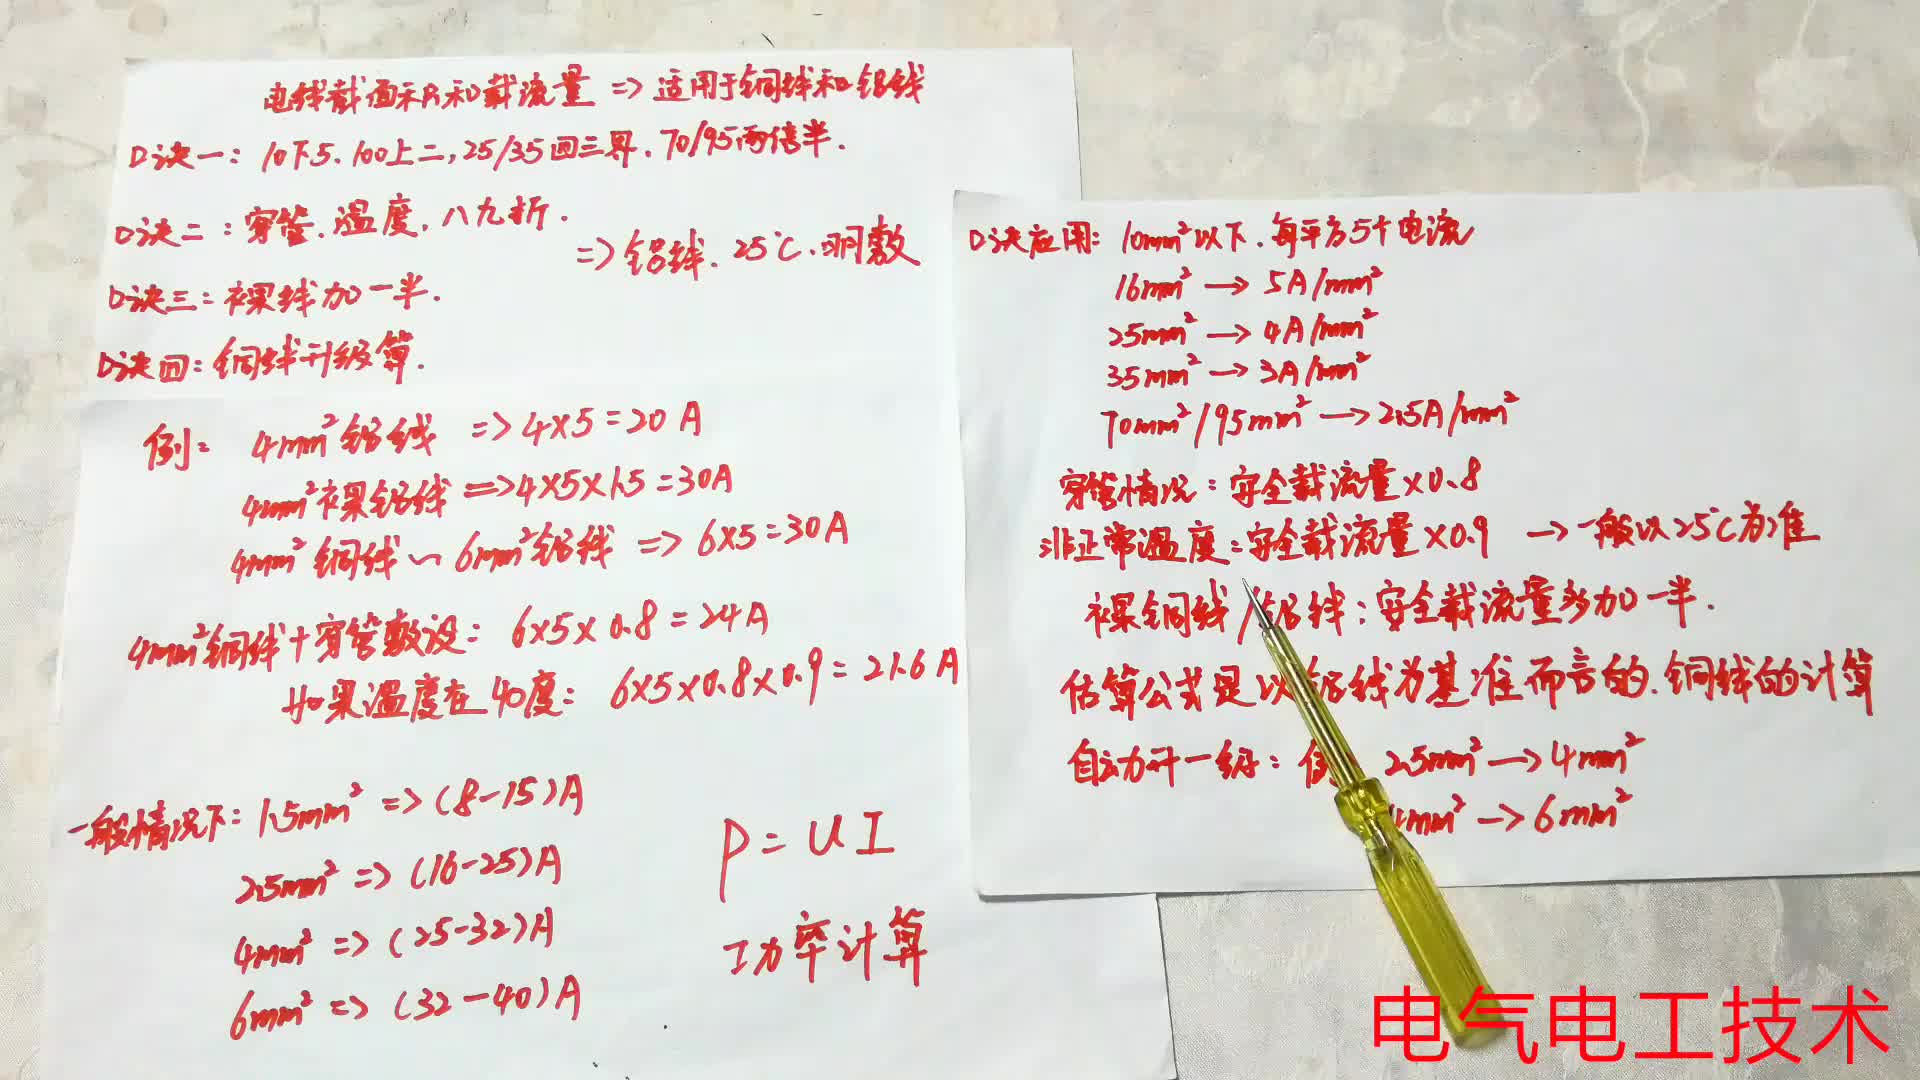 电线截面积和载流量 => 适用于铜线和铝线
口诀一: 10下5、100上二, 25/35四三界、70/95两倍半.
口诀二: 穿管、温度、八九折.
=> 铝线、25℃、明敷
口诀三: 裸线加一半.
口诀四: 铜线升级算.
例: 4mm² 铝线 => 4×5=20 A
4mm²裸铝线 => 4×5×1.5=30A
4mm² 铜线 ~ 6mm²铝线 => 6×5=30A
4mm²铜线+穿管敷设: 6×5×0.8=24A
如果温度在40度: 6×5×0.8×0.9=21.6A
一般情况下: 1.5mm² => (8-15)A
2.5mm² => (16-25)A
4mm² => (25-32)A
6mm² => (32-40)A
P=UI
功率计算
口诀应用: 10mm²以下、每平方5个电流
16mm² → 5A/mm²
25mm² → 4A/mm²
35mm² → 3A/mm²
70mm²/95mm² → 2.5A/mm²
穿管情况: 安全载流量×0.8
非正常温度: 安全载流量×0.9 → 一般以25℃为准
裸铜线/铝线: 安全载流量多加一半.
估算公式是以铝线为基准而言的、铜线的计算
自动升一级: 例 2.5mm² → 4mm²
4mm² → 6mm²
电气电工技术